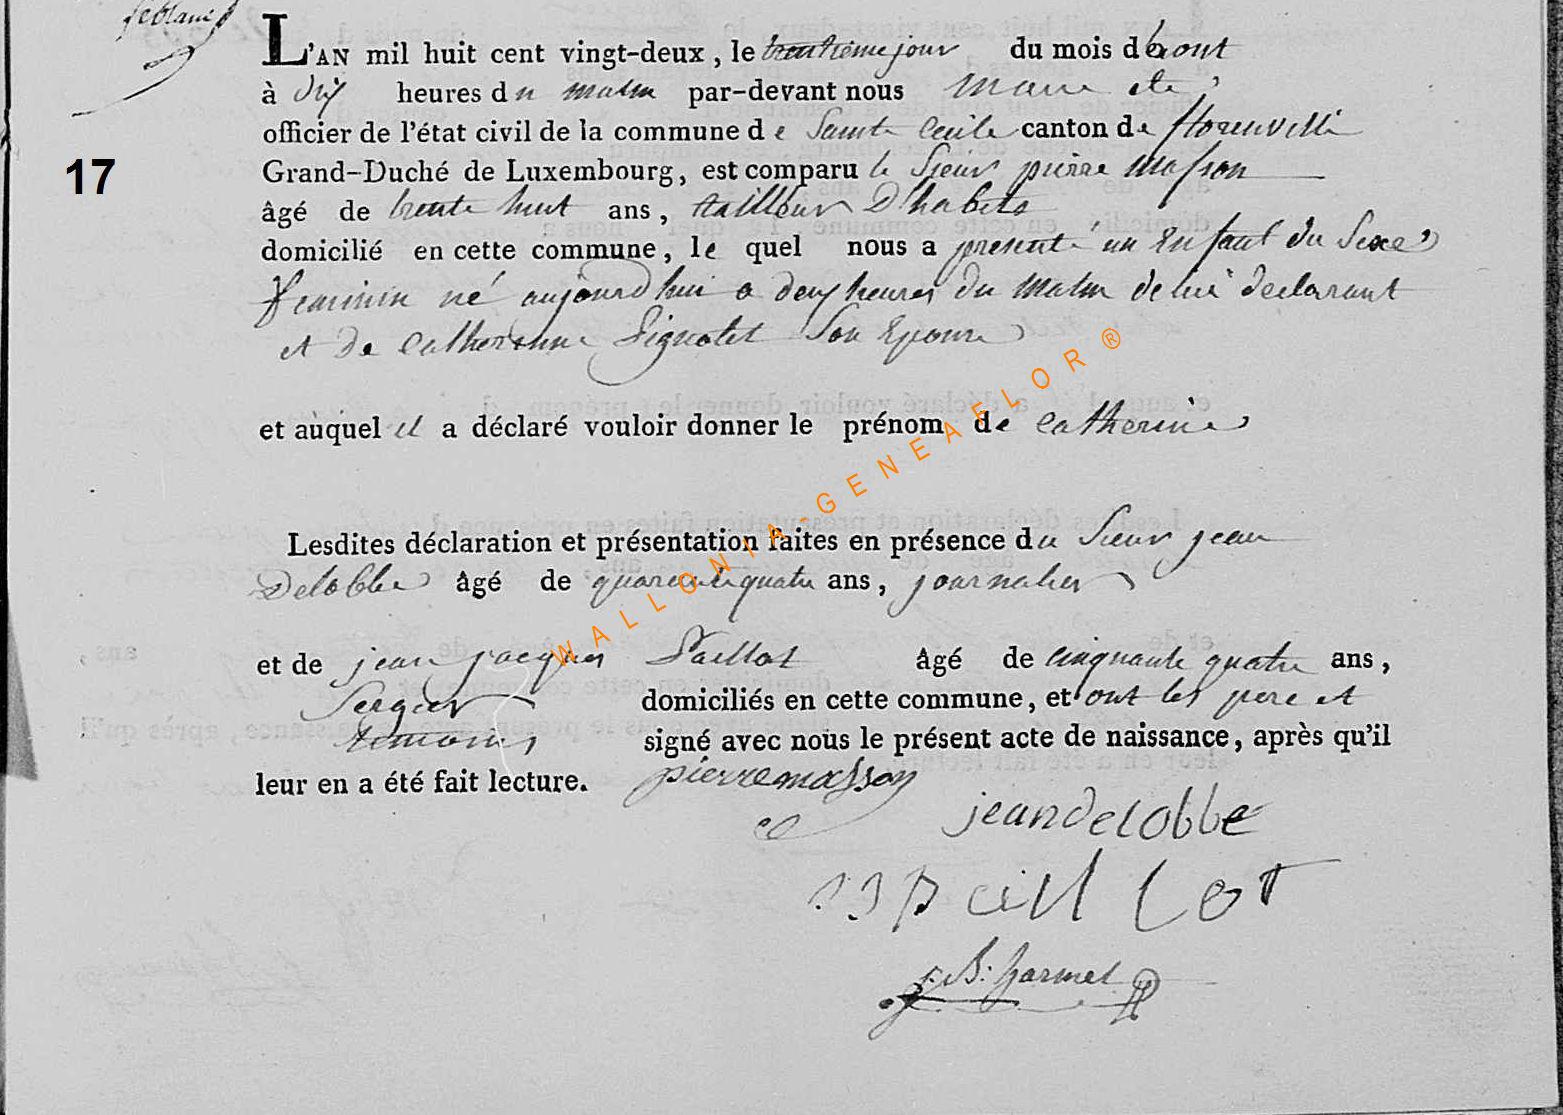 leblanc
L'AN mil huit cent vingt-deux, le trentieme jour du mois d'aout
à dix heures du matin par-devant nous maire etc
officier de l'état civil de la commune de Sainte Cecile canton de florenville
Grand-Duché de Luxembourg, est comparu le Sieur pierre Masson
âgé de trente huit ans, tailleur D'habits
domicilié en cette commune, le quel nous a presenté un Enfant du Sexe
feminin né aujourd'hui a deux heures du Matin de lui declarant
et de Catherinne Pignolet Son Epouse
17
et auquel il a déclaré vouloir donner le prénom de Catherine
Lesdites déclaration et présentation faites en présence du Sieur jean
Delobbe âgé de quarente quatre ans, journalier
et de jean jacques Paillot âgé de cinquante quatre ans,
Sergier domiciliés en cette commune, et ont les pere et
temoins signé avec nous le présent acte de naissance, après qu'il
leur en a été fait lecture. pierre masson
jean delobbe
JJ paillLot
J. B: harmel
WALLONIA-GENEAFLOR®